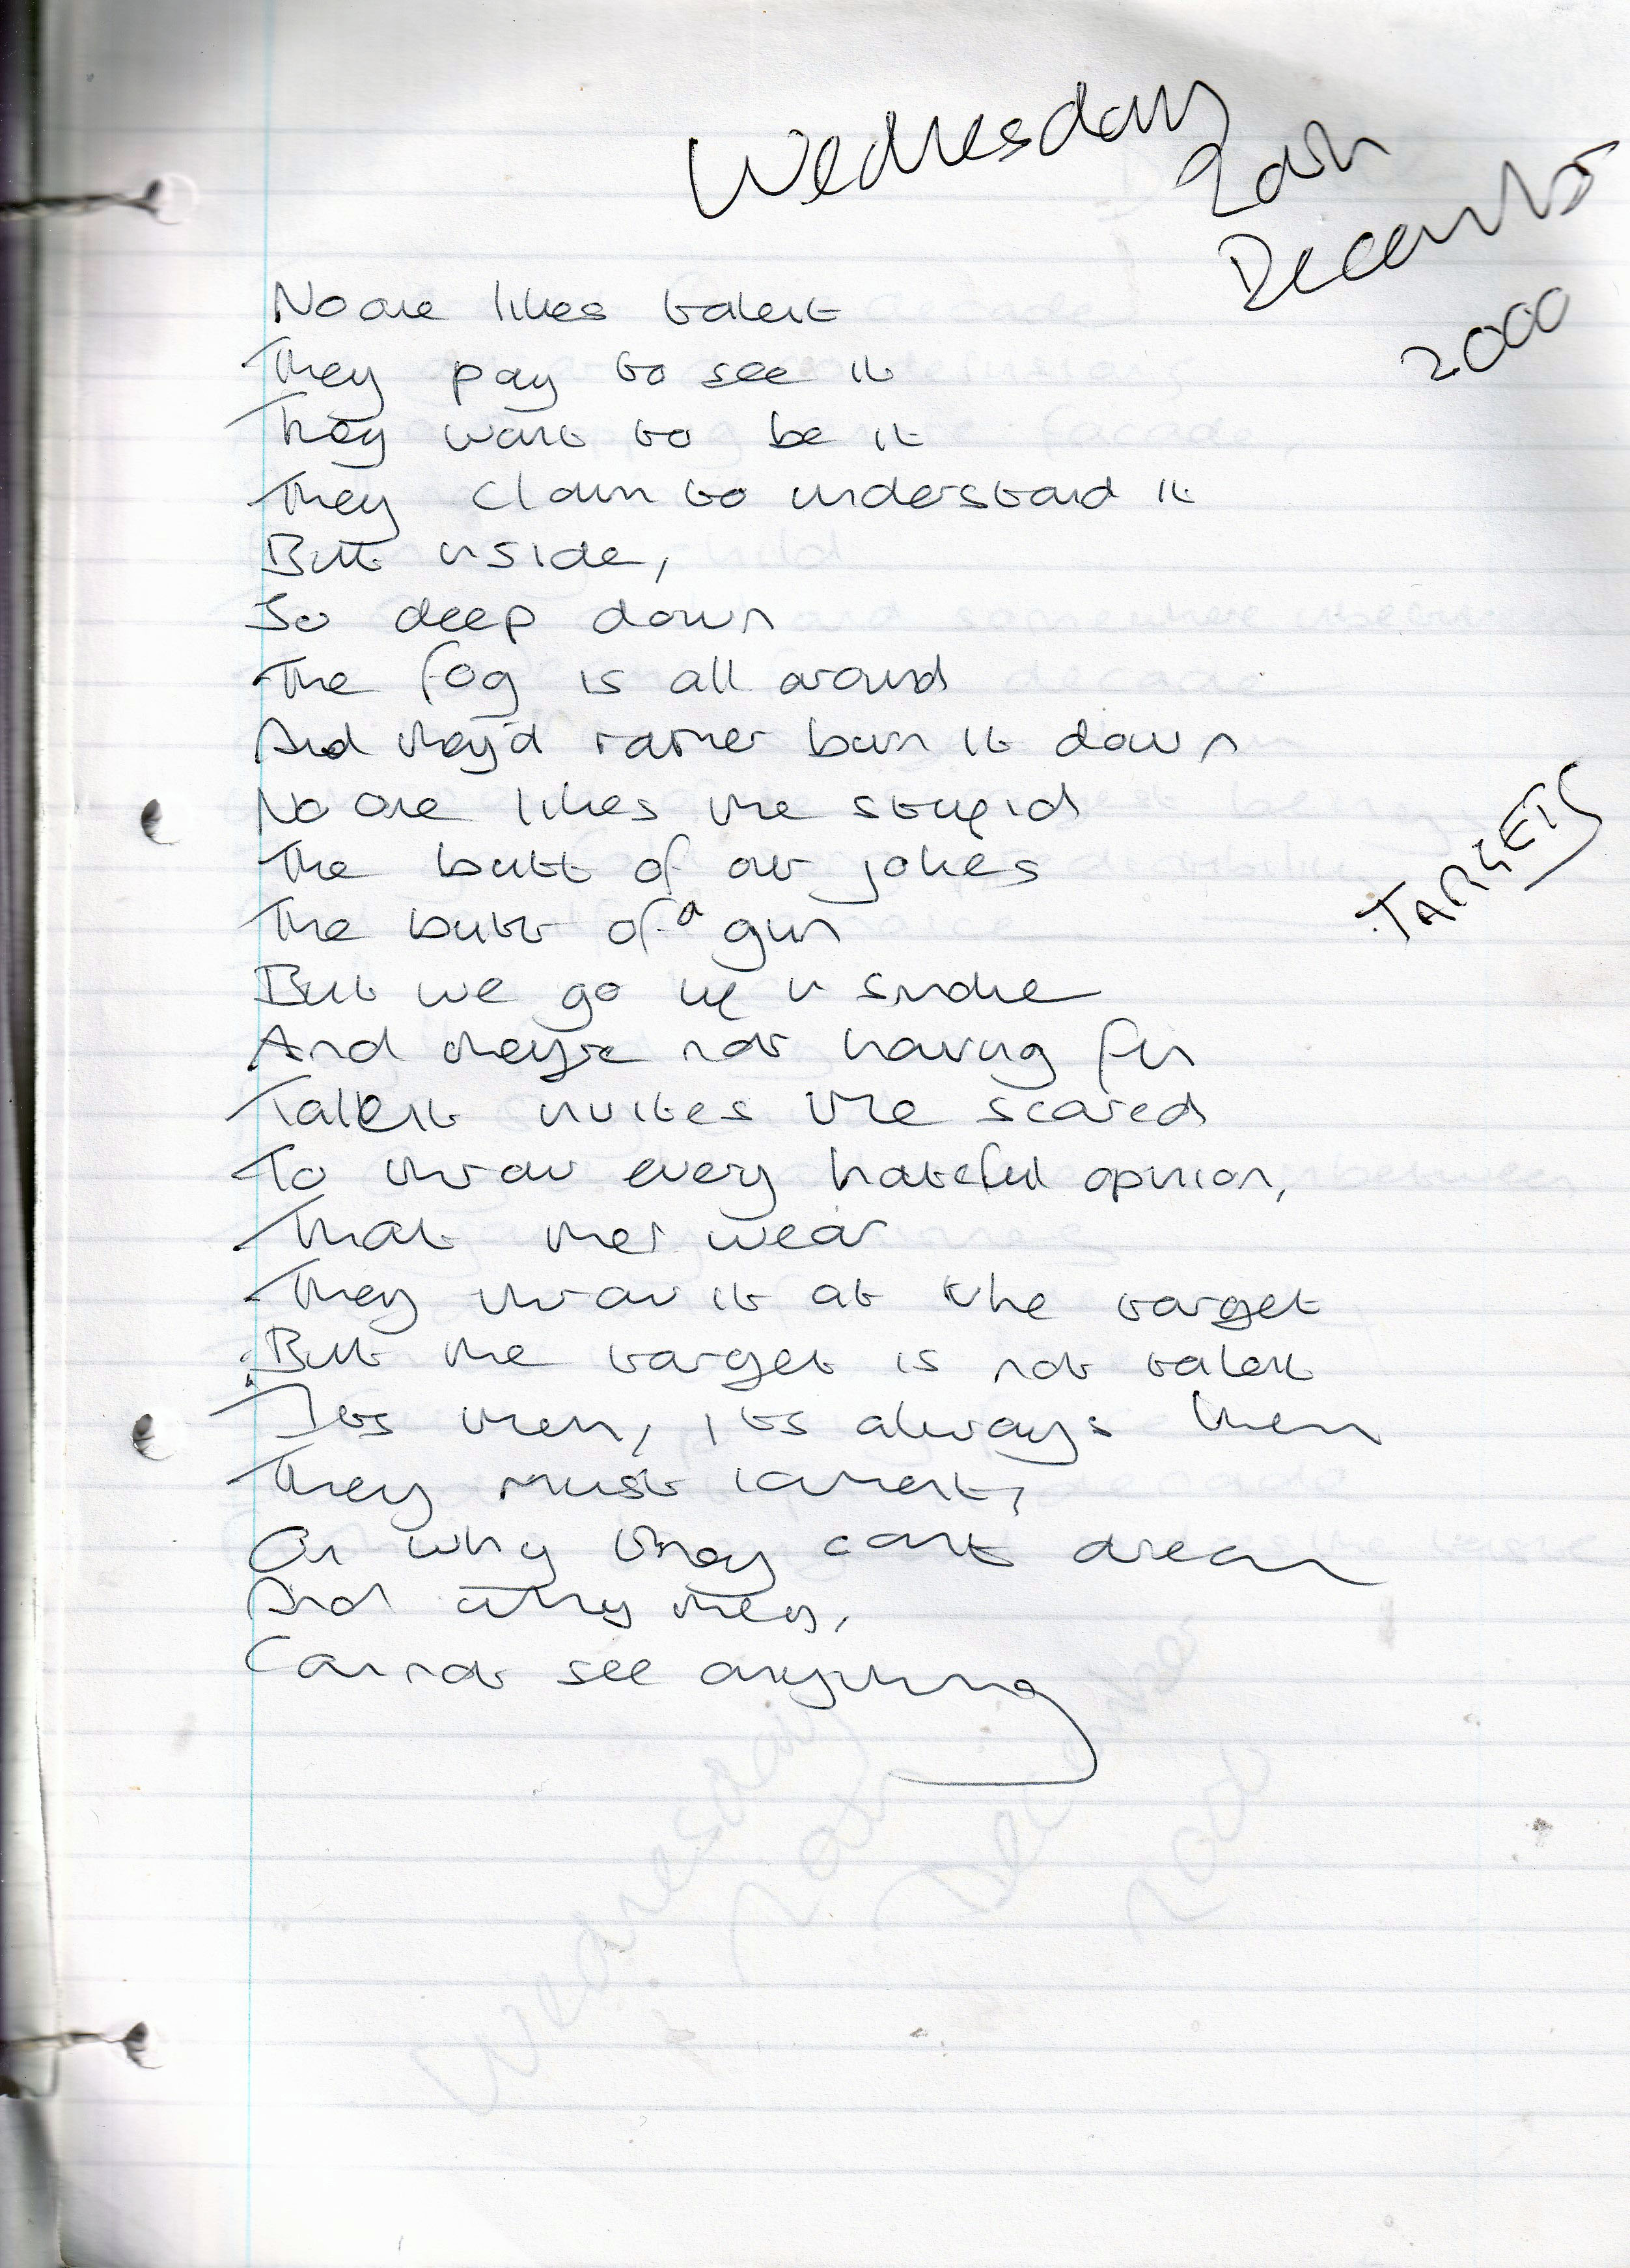 Wednesday
20th
December
2000
No one likes talent
They pay to see it
They want to be it
They claim to understand it
But inside,
So deep down
The fog is all around
And they'd rather burn it down
No one likes the stupid
The butt of our jokes
The butt of a gun
But we go up in smoke
And they're not having fun
TARGETS
Talent invites the scared
To throw every hateful opinion,
That they wear
They throw it at the target
But the target is not talent
Its them, its always them
They must lament,
On why they cant dream
And why they,
Cannot see anything